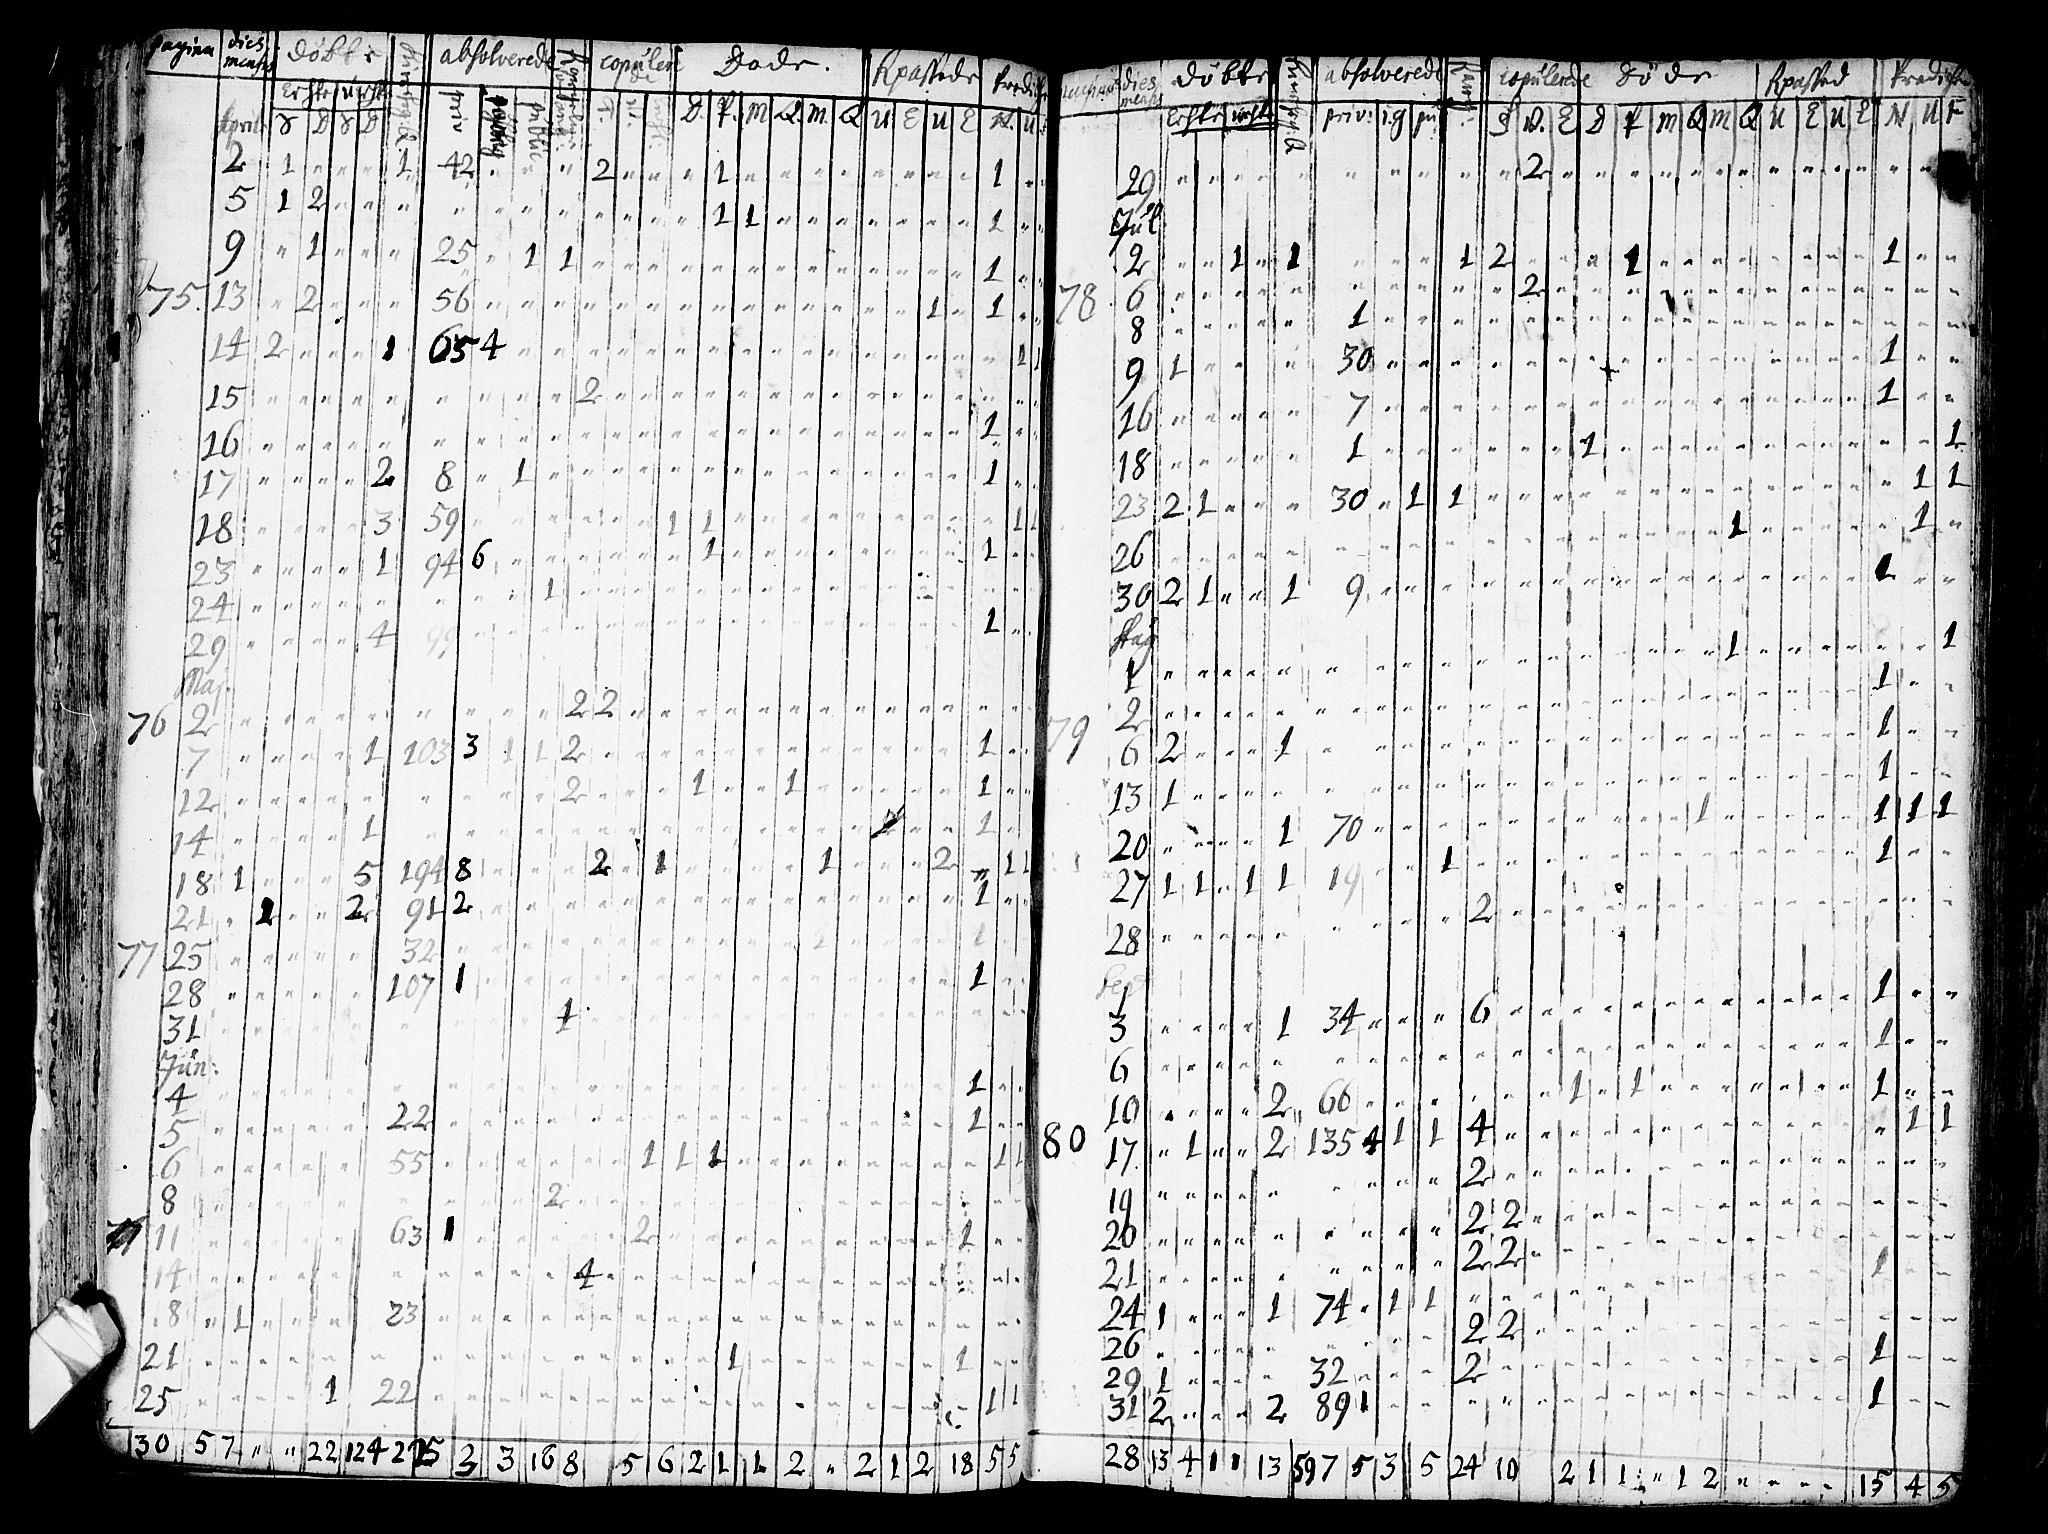 pagina dies mensis Döbte absolverede copulerede Døde. Apassede Prædiker
Echte Uechte priv. public
April. S D S D D. P. M Q. M. Q U E U E N. U.
2 1 " " " 1 42 " " " 2 " " " 1 " " " " " " " " 1 " "
5 1 2 " " " " " " " " " " " 1 1 " " " " " " " 1 " "
9 " 1 " " " 25 " 1 1 " " " " " " " " " " " " " 1 " "
75. 13 " 2 " " " 56 " " " " " " " " " " " " " 1 " 1 " "
14 2 " " " 1 65 4 " " " " " " " " " " " " " " " 1 1
15 " " " " " " " " " 2 " " " " " " " " " " " " " "
16 " " " " " " " " " " " " " " " " " " " " " 1 " "
17 " " " " 2 8 " 1 " " " " " " " " " " " " " 1 " "
18 " " " " 3 59 " " " " " " 1 1 " " " " " " " " 1 1
23 " " " " 1 94 6 " " " " " " 1 " " " " " " " 1 " "
24 " " " " " " " " 1 " " " " " " " " " " " " " " "
29 " " " " 4 99 " " " " " " " " " " " " " " " 1 " "
Maj.
76 2 " " " " " " " " " 2 2 " " " " " " " " " " " " "
7 " " " " 1 103 3 1 1 2 " " " " " " " " " " " 1 " "
12 " " " " " " " " " 2 " " " 1 " " 1 " " " " 1 " "
14 " " " " 1 " " " " " " " " " " " " " " " 1 "
18 1 " " " 5 194 8 " " " 2 " 1 " " " " 1 " " 2 " 1 1
21 " 1 " " 2 91 2 " " " " " " " " " " " " " " 1 " "
77 25 " " " " " 32 " " " " " " " " " " 1 " " " " 1 " "
28 " " " " " 107 1 " " " " " " " " " " " " " " 1 " "
31 " " " " " " " " " 1 " " " " " " " " " " " " " "
Jun:
4 " " " " " " " " " " " " " " " " " " " " " 1 " "
5 " " " " " 22 " " " " " " " " " " " " " " " 1 " "
6 " " " " " 55 " " " " " 1 1 1 " " " " " " " " 1 1
8 " " " " " " " " 2 " " " " " " " " " " " " " "
11 " " " " " 63 1 " " " " 2 " " " " " " " " " 1 " "
14 " " " " " " " " " 4 " " " " " " " " " " " " "
8 " 1 " " " 23 " " " " " " " " " " " " " " " " "
21 " " " " " " " " " " " " " 1 " " " " " " 1 " "
25 " " " " 1 22 " " " " " " " " " " " " " " " 1 1
30 5 7 " " 22 3 3 16 8 5 6 2 1 1 2 " 2 1 2 18 5 5
dies mensis Döbte absolverede copulerede Döde Apassed Prædiker
Echte Uechte priv: p: S D. E D P M Q M Q U E U E N U F
29 " " " " " " " " " " " 2 " " " " " " " " " " " " "
Jul
2 " " 1 " 1 " " " 1 2 " " " 1 " " " " " " " " 1 " "
78 6 " " " " " " " " " " 2 " " " " " " " " " " " " "
8 " " " " " 1 " " " " " " " " " " " " " " " " " "
9 1 " " " " 30 " " " " " " " " " " " " " " " 1 " "
16 " " " " " 7 " " " " " " " " " " " " " " " 1 " "
18 " " " " " 1 " " " " " " 1 " " " " " " " " " " 1
23 2 1 " " " 30 " 1 1 " " " " " " " " " " " " " 1 1
26 " " " " " " " " " " " " " " " " " 1 " " " " 1 "
30 2 1 " " 1 9 " " " " " " " " " " " " " " " 1 " "
Aug
1 " " " " " " " " " " " " " " " " 1 " " " " " " 1
2 " " " " " " " " " " " " " " " " " " " " " 1 " "
79 6 2 " " " 1 " " " " " " " " " " " " " " " " 1 " "
13 1 " " " " " " " " " " " " " " " " " " " " 1 " "
20 " " " " 1 70 " " " " " " " " " " 1 " " " " 1 1 1
27 1 1 " 1 1 19 " " 1 " " " " " " " " " " " " 1 " "
28 " " " " " " " " " 2 " " " " " " " " " " " " " "
Sept
1
3 " " " " 1 34 " " " 6 " " " " " " " " " " " 1 " "
6 " " " " " " " " " " " " " " " " " " " " " 1 " "
10 " " " " 2 " 66 " " " " " " 1 " 1 " " " " " " 1 " "
80 17. " 1 " " 2 135 4 1 1 4 " " " " " " " " " " " " 1 1
19 " " " " " " " " " 2 " " " " " " " " " " " " "
20 " " " " " " " " " 2 2 " " " " " " " " " " " "
21 " " " " " " " " " 2 2 " " " " " " " " " " 1 " "
24 1 " " " 1 74 " 1 1 " " " " " " " " " " " " " "
26 " " " " " " " " " 2 2 " " " " " " " " " " " "
29 1 " " " " 32 " " " 2 " " " " " " " " " " " 1 " "
31 2 " " " 2 89 1 " " " " " " " " " " " " " " 1 " "
28 13 4 1 1 13 597 5 3 5 24 10 2 1 1 " 1 2 " " " " 15 4 5